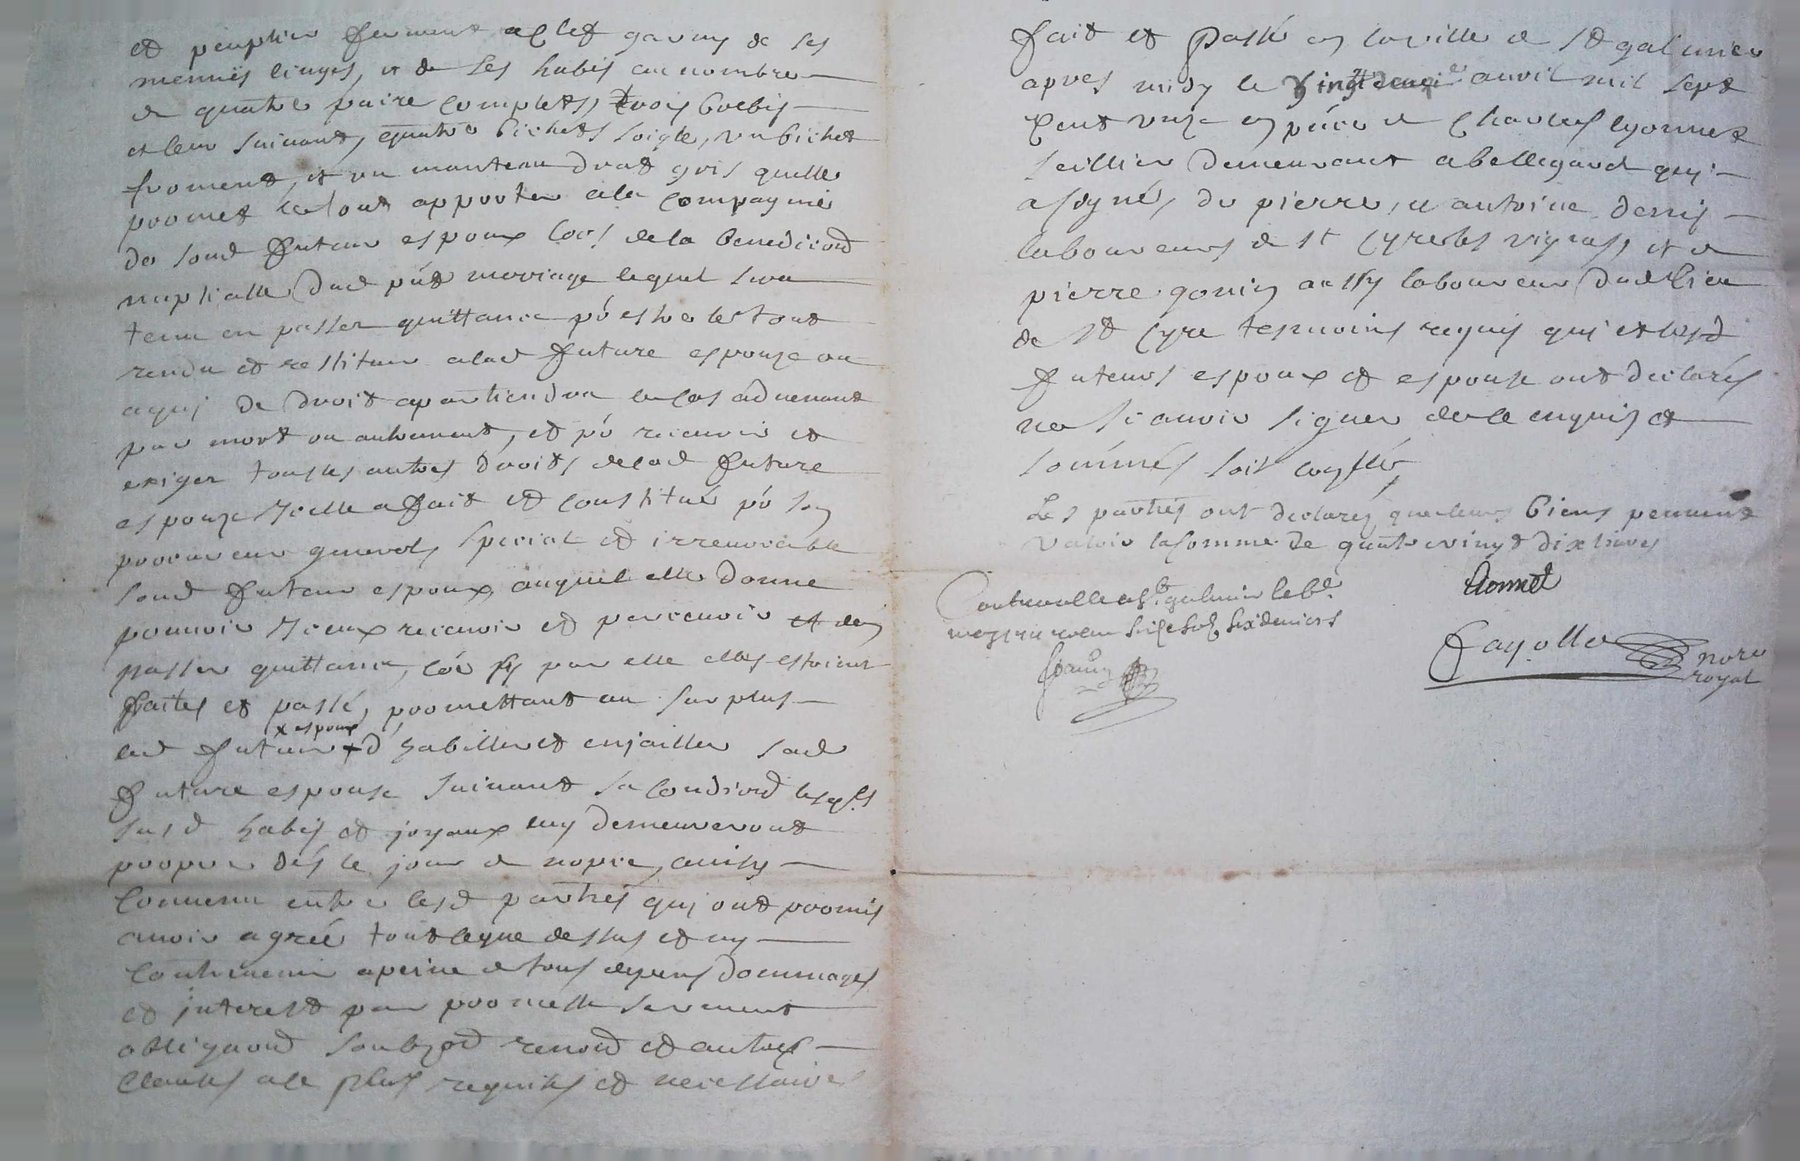 et peuplier fermant a clef garny de ses
menües linges, et de ses habis au nombre
de quatre paire complets, trois brebis
et leur suivant, quatre bichets soigle, un bichet
froment, et un manteau drat gris quelle
promet le tout apporter a la compagnie
de sond futeur espoux lors de la benediciond
nuptialle dud pñt mariage lequel sera
tenu en passer quittance pr estre le tout
rendu et restituer a lad future espouze ou
a qui de droit apartiendra le cas advenant
par mort ou autrement, et pr recevoir et
exiger tous les autres droits de lad future
espouze icelle a fait et constitué pr son
procureur general, special et irrevocable
soud futeur espoux, auquel elle donne
pouvoir iceux recevoir et percevoir et den
passer quittance, coe sy par elle elles estoient
faites et passé, promettant au surplus
led futeur x d'habiller et enjailler sad
x espoux
future espouse suivant sa condiciond lesqls
susd habis et joyaux luy demeureront
propre dés le jour de nopce, ainsy
convenu entre lesd parties qui ont promis
avoir agréé tout ce que dessus et ny
contrevenir a peine de tous depens dommages
et interest par promesse serement
obligaond soubzod renond et autres
clauses a ce plus requises et necessaires
fait et passé en la ville de St galmier
apres midy le vingt deuxie avril mil sept
cent unze en pñce de Charles lyonnet
seillier demeurant a bellegarde qui
a signé, de pierre, et antoine denis
laboureurs de St Cyre les vignes, et de
pierre gonin aussy laboureur dud lieu
de St Cyre tesmoins requis qui et lesd
futeurs espoux et espouze ont declarés
ne scavoir signer de ce enquis et
sommés soit conllé
Les parties ont declarés que leurs biens peuvent
valoir la somme de quatre vingt dix livres
Controuollé a St galmier le
receu seize sols six deniers
lionnet
Fayolle nore
royal